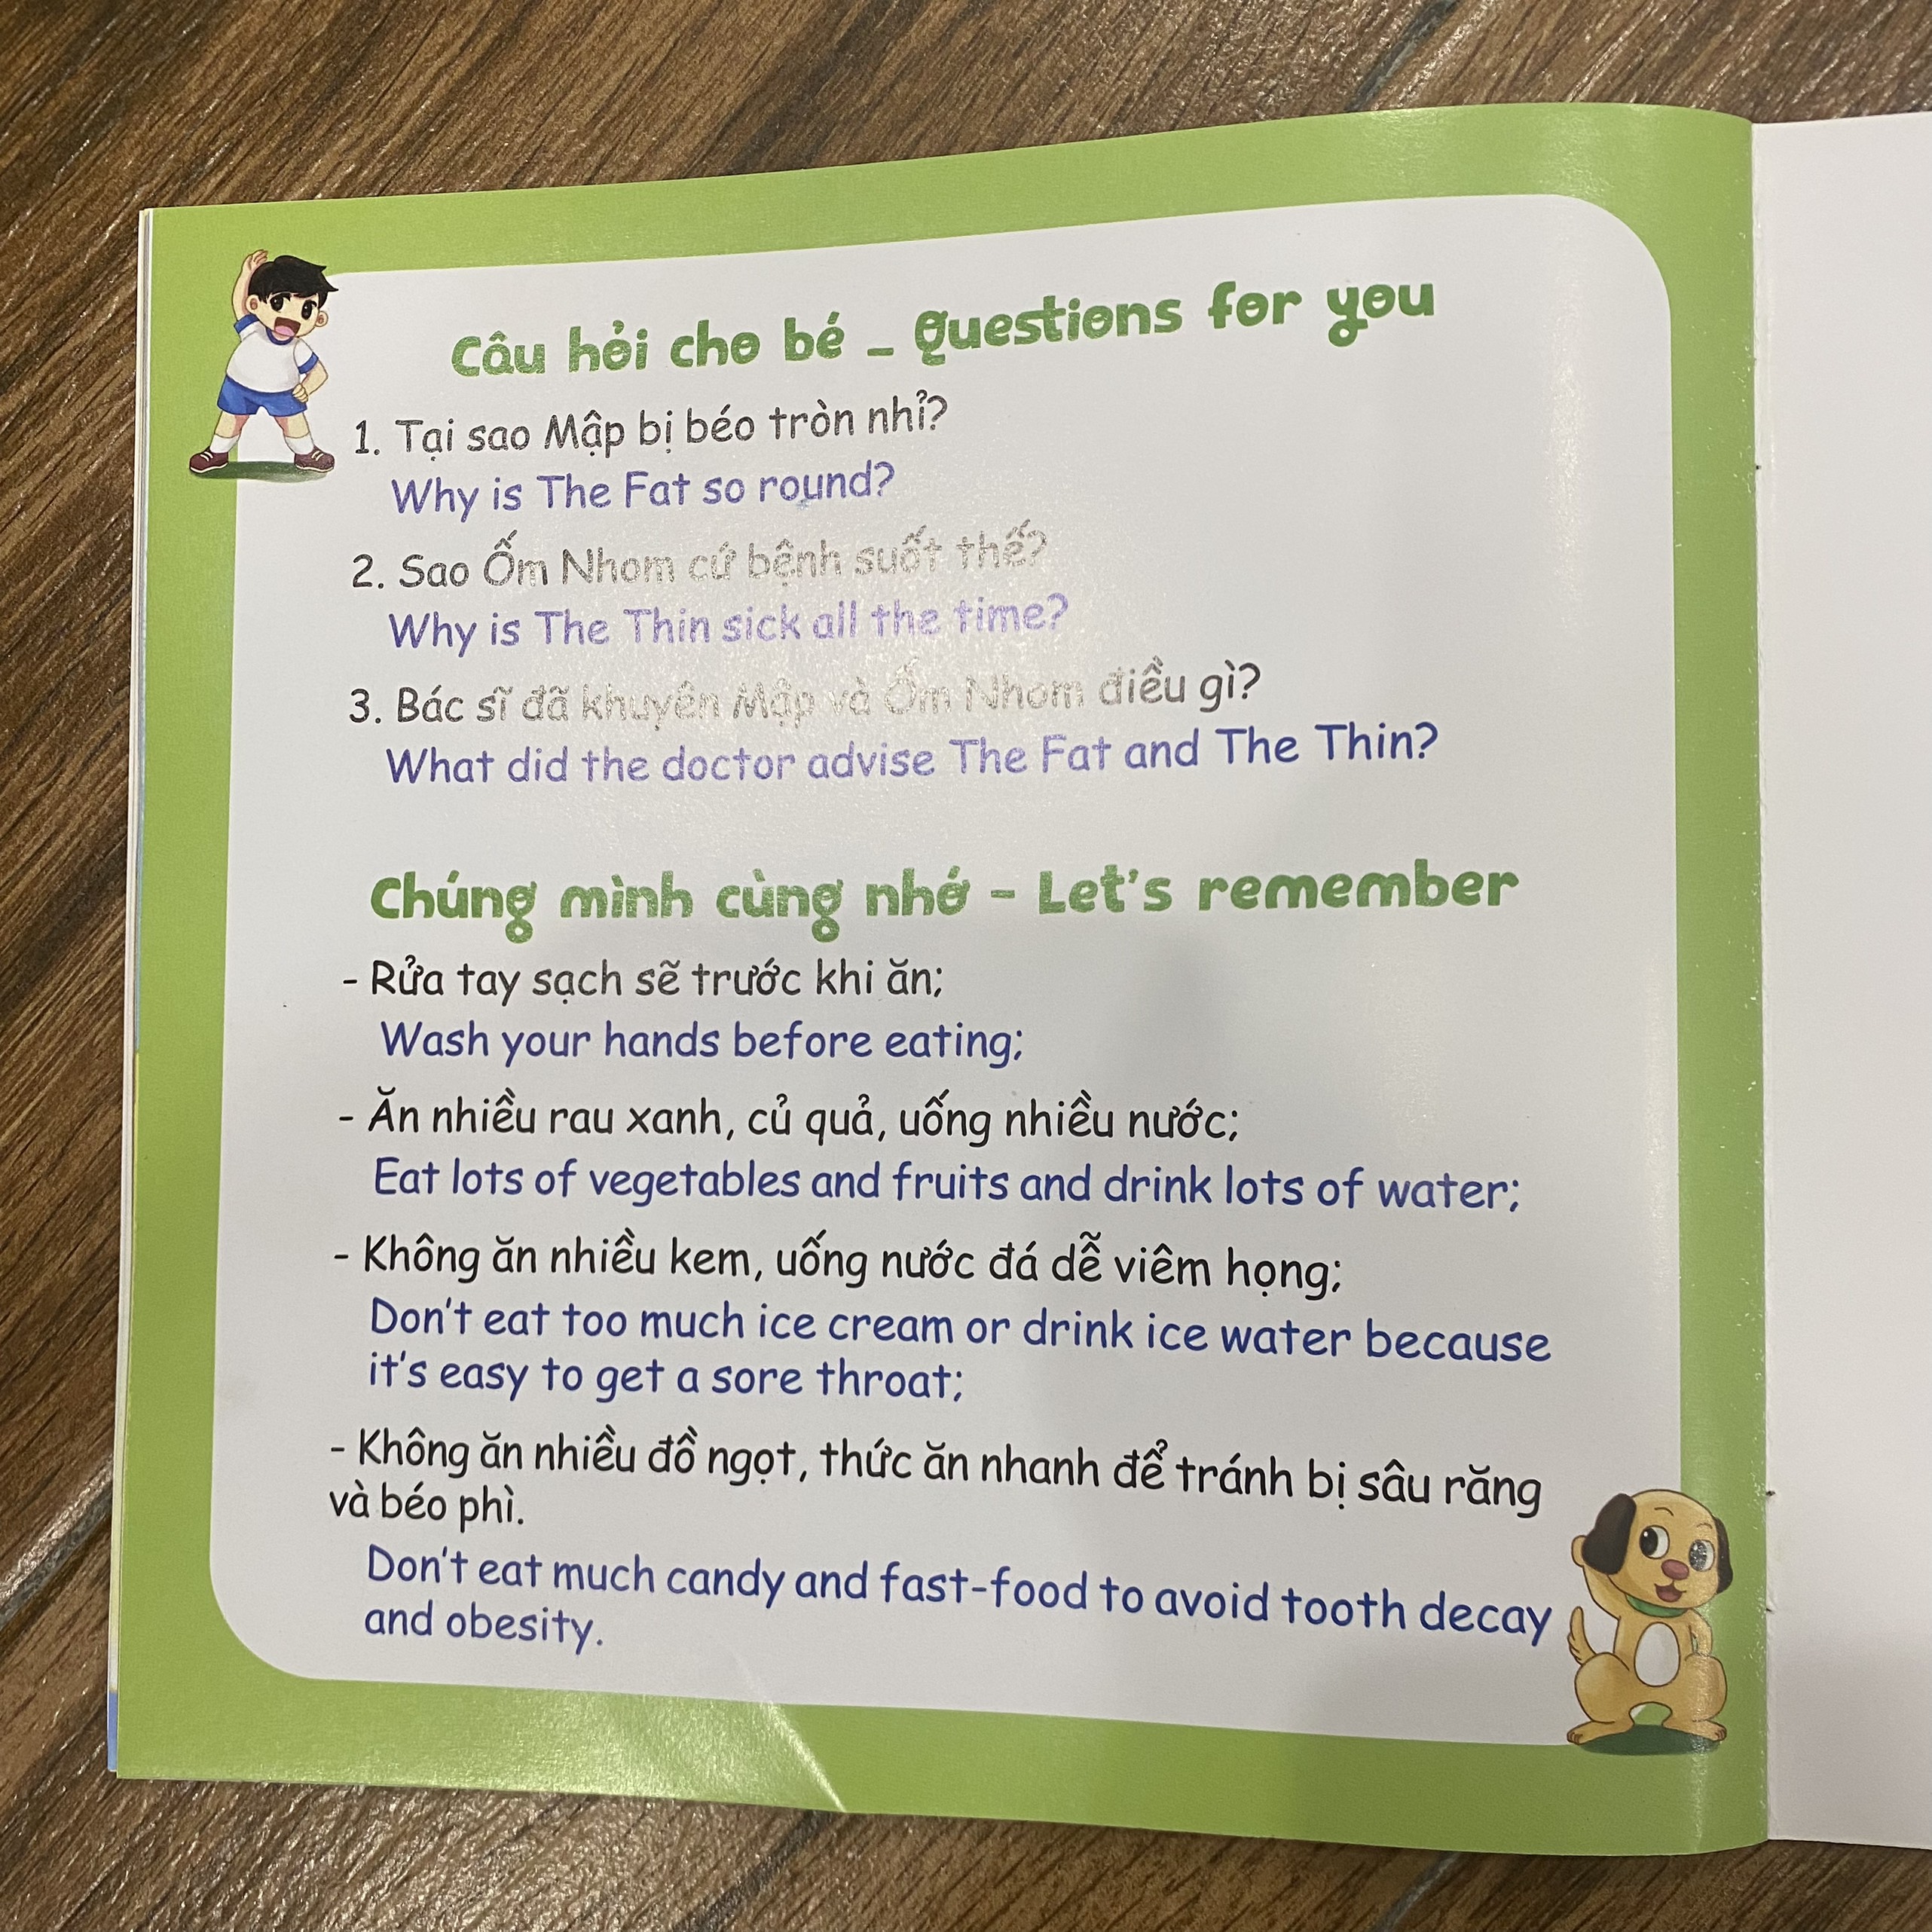 Câu hỏi cho bé _ Questions for you
1. Tại sao Mập bị béo tròn nhỉ?
Why is The Fat so round?
2. Sao Ốm Nhom cứ bệnh suốt thế?
Why is The Thin sick all the time?
3. Bác sĩ đã khuyên Mập và Ốm Nhom điều gì?
What did the doctor advise The Fat and The Thin?
Chúng mình cùng nhớ - Let's remember
- Rửa tay sạch sẽ trước khi ăn;
Wash your hands before eating;
- Ăn nhiều rau xanh, củ quả, uống nhiều nước;
Eat lots of vegetables and fruits and drink lots of water;
- Không ăn nhiều kem, uống nước đá dễ viêm họng;
Don't eat too much ice cream or drink ice water because
it's easy to get a sore throat;
- Không ăn nhiều đồ ngọt, thức ăn nhanh để tránh bị sâu răng
và béo phì.
Don't eat much candy and fast-food to avoid tooth decay
and obesity.